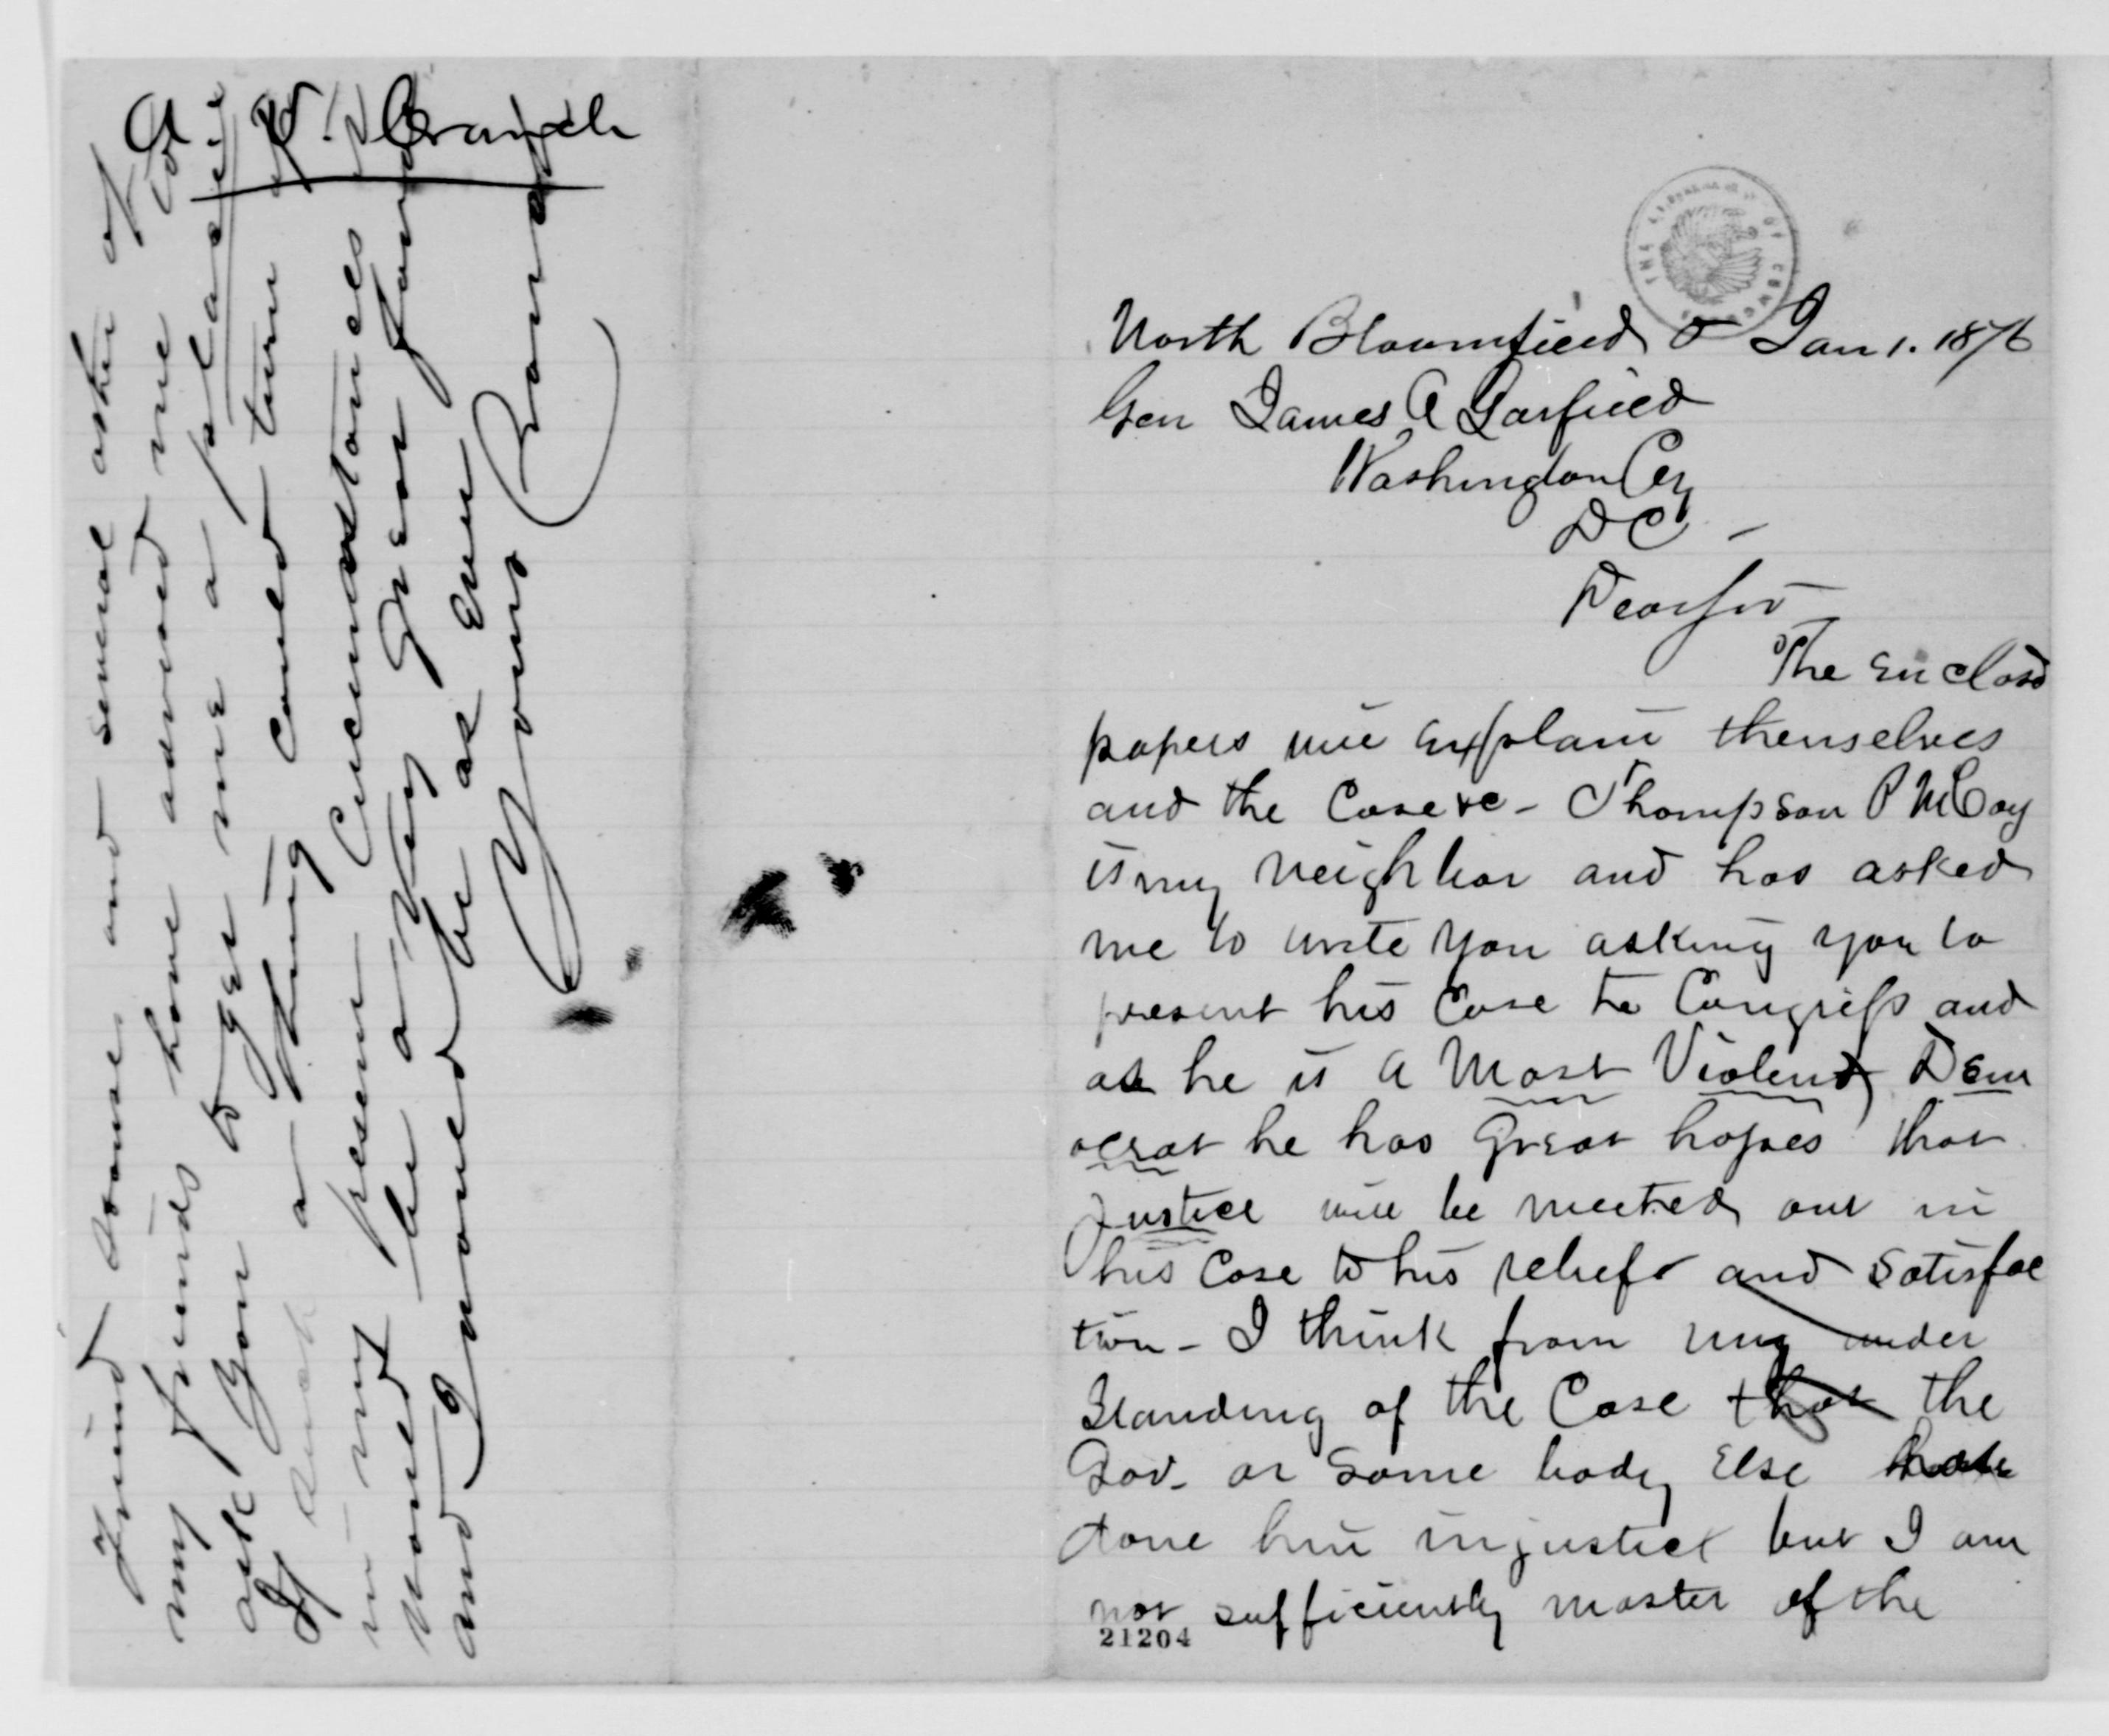 North Bloomfield O Jan 1. 1876
Gen James A Garfield
Washington City
D C -
Dear Sir
The Enclosd
papers will Explain themselves
and the Case &c - Thompson P McCoy
is my neighbor and has asked
me to write you asking you to
present his Case to Congress and
as he is a Most Violent Dem
ocrat he has Great hopes that
Justice will be meeted out in
his Case to his relief and Satisfac
tion - I think from my under
Standing of the Case that the
Gov. or Some body Else have
done him injustice but I am
not sufficiently master of the
21204
friend Warner and several other of
my friends have advised me to
ask you to get me a place
If Such a thing Could turn up
in my present Circumstances
Would be a Very Great favor
and I would be as Ever
Yours